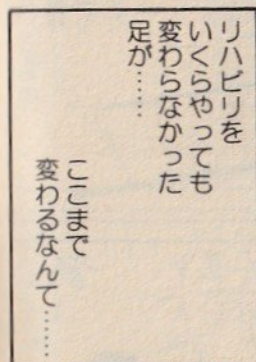 リハビリを
いくらやっても
変わらなかった
足が……
ここまで
変わるなんて……